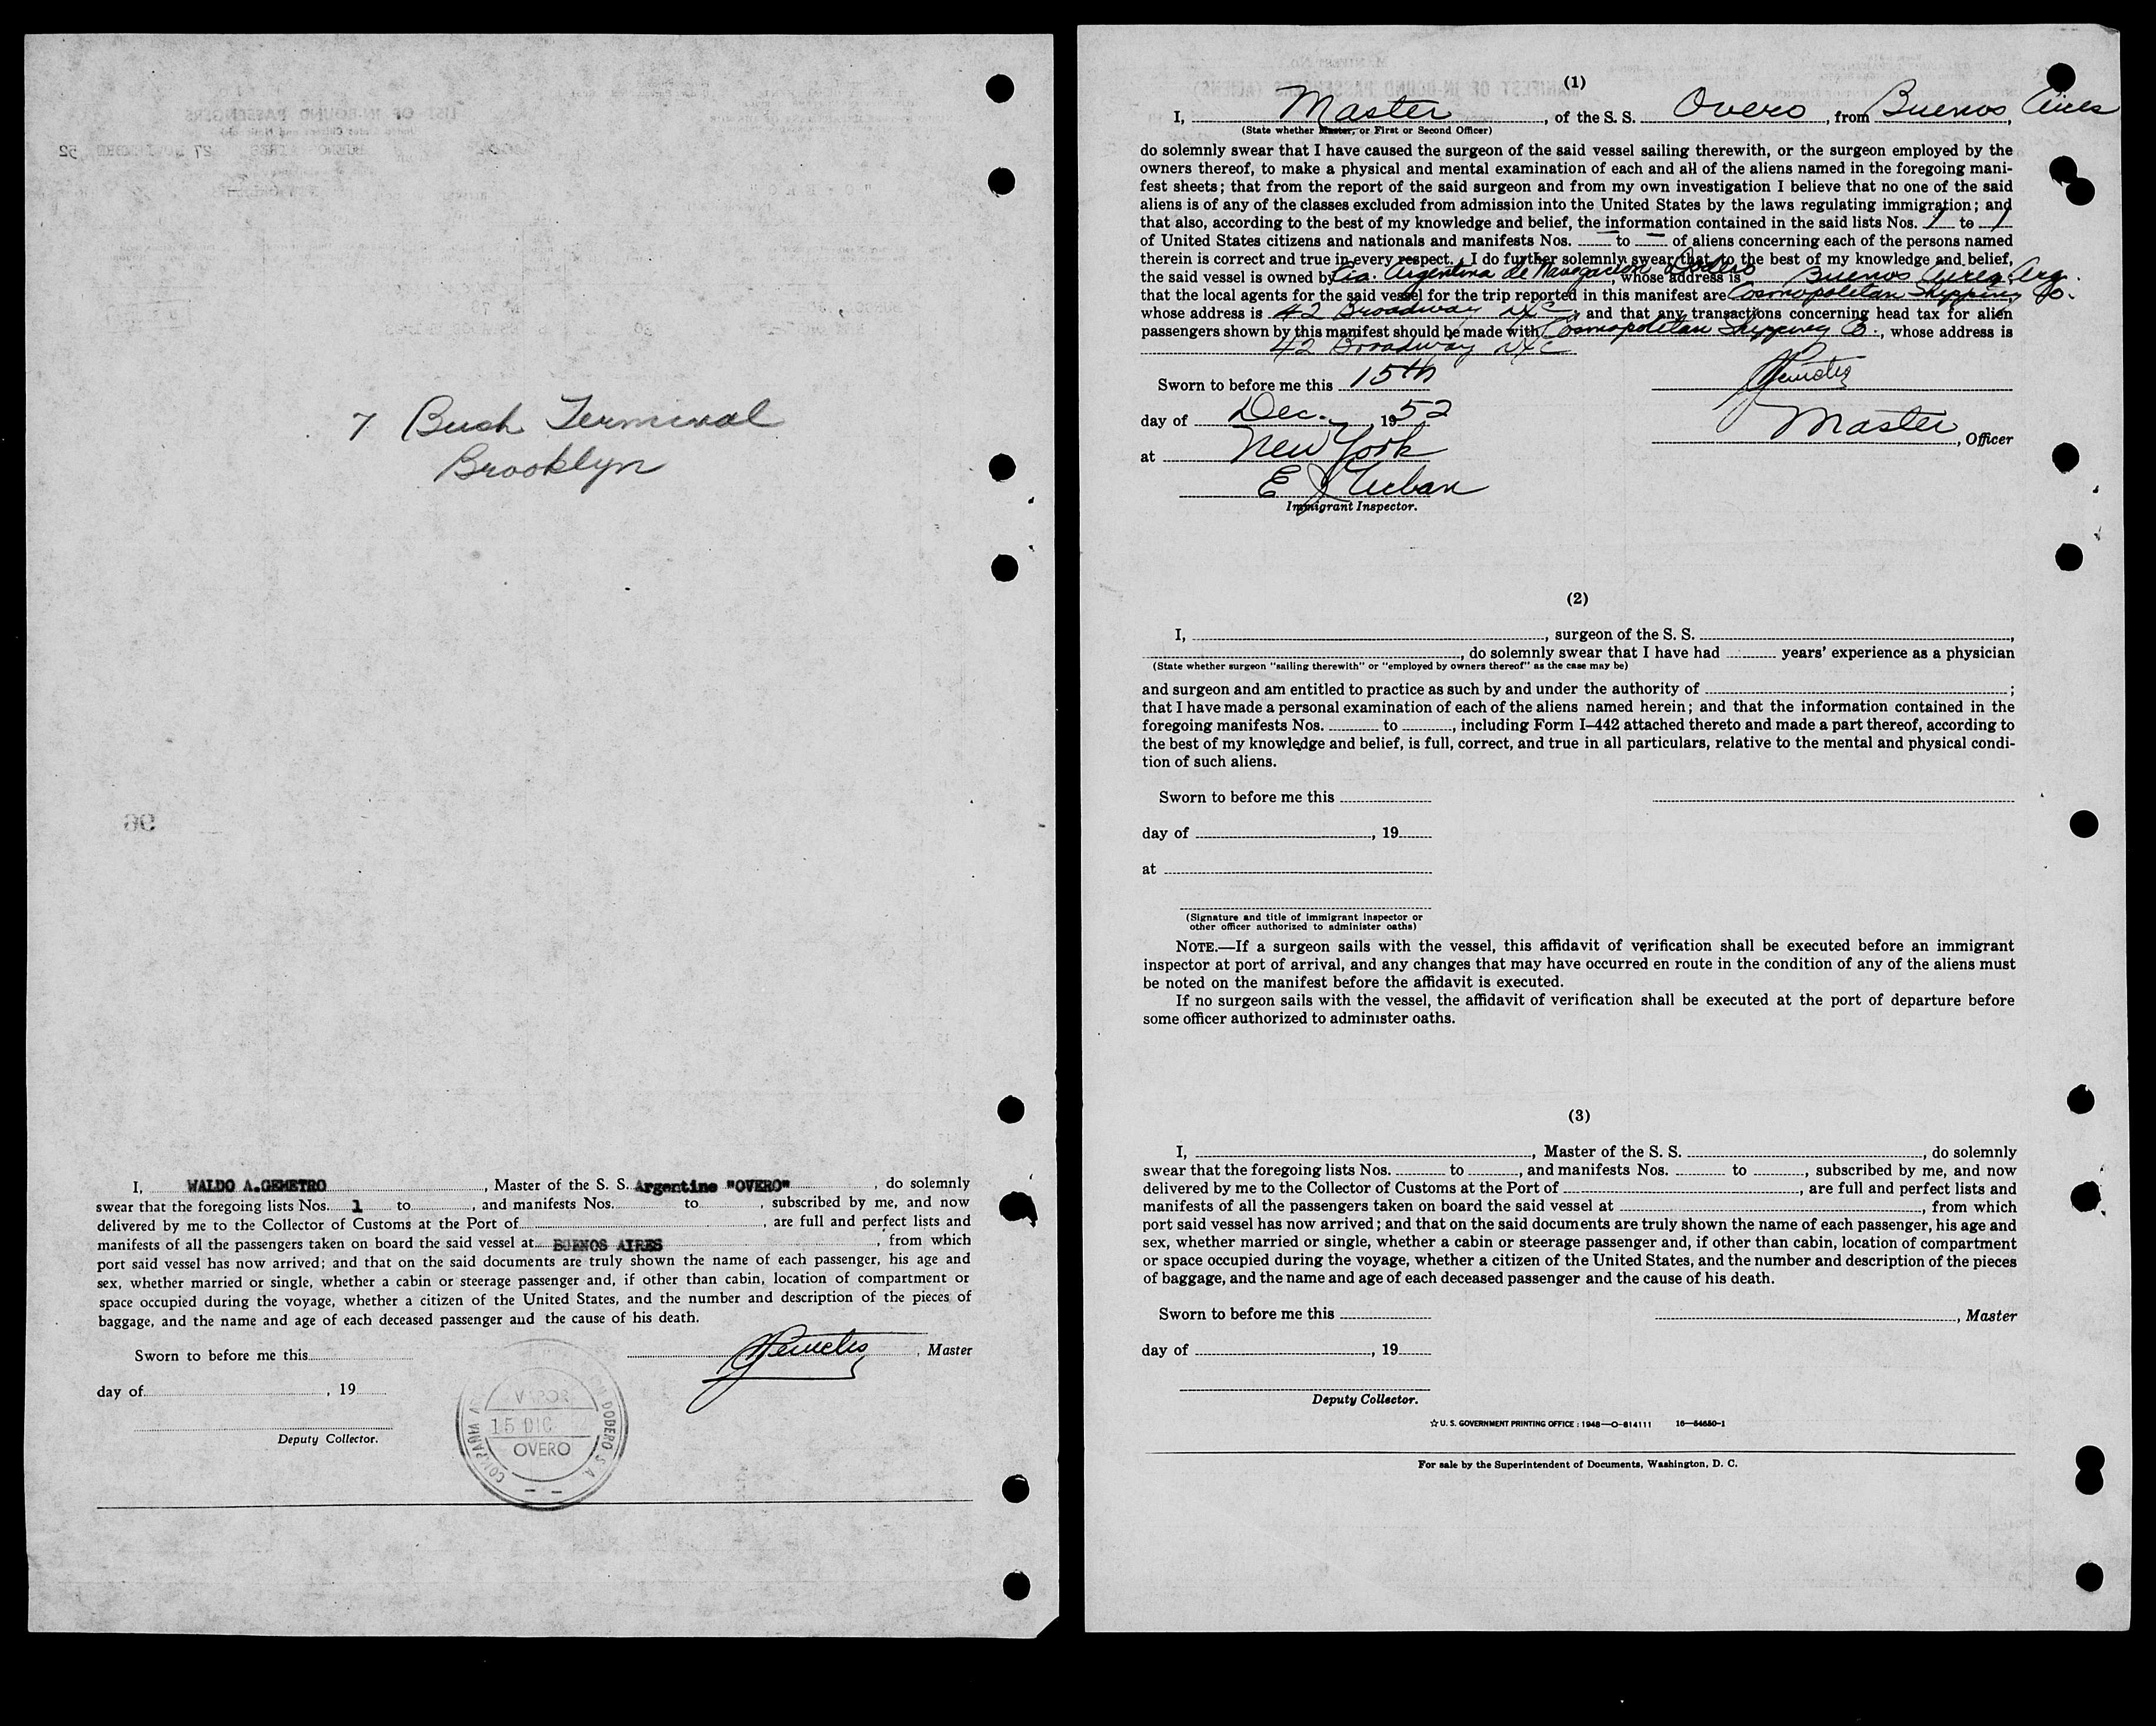 7 Bush Terminal
Brooklyn
I, WALDO A.GEMETRO, Master of the S. S. Argentine "OVERO", do solemnly
swear that the foregoing lists Nos. 1 to , and manifests Nos. to , subscribed by me, and now
delivered by me to the Collector of Customs at the Port of , are full and perfect lists and
manifests of all the passengers taken on board the said vessel at BUENOS AIRES, from which
port said vessel has now arrived; and that on the said documents are truly shown the name of each passenger, his age and
sex, whether married or single, whether a cabin or steerage passenger and, if other than cabin, location of compartment or
space occupied during the voyage, whether a citizen of the United States, and the number and description of the pieces of
baggage, and the name and age of each deceased passenger and the cause of his death.
Sworn to before me this
, Master
day of , 19
Deputy Collector.
VAPOR
15 DIC. 52
OVERO
COMPAÑIA DODERO S. A.
(1)
I, Master, of the S. S. Overo, from Buenos Aires
(State whether Master, or First or Second Officer)
do solemnly swear that I have caused the surgeon of the said vessel sailing therewith, or the surgeon employed by the
owners thereof, to make a physical and mental examination of each and all of the aliens named in the foregoing mani-
fest sheets; that from the report of the said surgeon and from my own investigation I believe that no one of the said
aliens is of any of the classes excluded from admission into the United States by the laws regulating immigration; and
that also, according to the best of my knowledge and belief, the information contained in the said lists Nos. 1 to 1
of United States citizens and nationals and manifests Nos. — to — of aliens concerning each of the persons named
therein is correct and true in every respect. I do further solemnly swear that to the best of my knowledge and belief,
the said vessel is owned by Cia. Argentina de Navegacion Dodero, whose address is Buenos Aires, Arg.
that the local agents for the said vessel for the trip reported in this manifest are Cosmopolitan Shipping Co.
whose address is 42 Broadway NYC, and that any transactions concerning head tax for alien
passengers shown by this manifest should be made with Cosmopolitan Shipping Co., whose address is
42 Broadway NYC
Sworn to before me this 15th
day of Dec., 1952
Master, Officer
at New York
E J Urban
Immigrant Inspector.
(2)
I, , surgeon of the S. S. ,
, do solemnly swear that I have had years' experience as a physician
(State whether surgeon "sailing therewith" or "employed by owners thereof" as the case may be)
and surgeon and am entitled to practice as such by and under the authority of ;
that I have made a personal examination of each of the aliens named herein; and that the information contained in the
foregoing manifests Nos. to , including Form I–442 attached thereto and made a part thereof, according to
the best of my knowledge and belief, is full, correct, and true in all particulars, relative to the mental and physical condi-
tion of such aliens.
Sworn to before me this
day of , 19
at
(Signature and title of immigrant inspector or
other officer authorized to administer oaths)
NOTE.—If a surgeon sails with the vessel, this affidavit of verification shall be executed before an immigrant
inspector at port of arrival, and any changes that may have occurred en route in the condition of any of the aliens must
be noted on the manifest before the affidavit is executed.
If no surgeon sails with the vessel, the affidavit of verification shall be executed at the port of departure before
some officer authorized to administer oaths.
(3)
I, , Master of the S. S. , do solemnly
swear that the foregoing lists Nos. to , and manifests Nos. to , subscribed by me, and now
delivered by me to the Collector of Customs at the Port of , are full and perfect lists and
manifests of all the passengers taken on board the said vessel at , from which
port said vessel has now arrived; and that on the said documents are truly shown the name of each passenger, his age and
sex, whether married or single, whether a cabin or steerage passenger and, if other than cabin, location of compartment
or space occupied during the voyage, whether a citizen of the United States, and the number and description of the pieces
of baggage, and the name and age of each deceased passenger and the cause of his death.
Sworn to before me this
, Master
day of , 19
Deputy Collector.
☆ U. S. GOVERNMENT PRINTING OFFICE : 1948—O–814111 16—54650-1
For sale by the Superintendent of Documents, Washington, D. C.